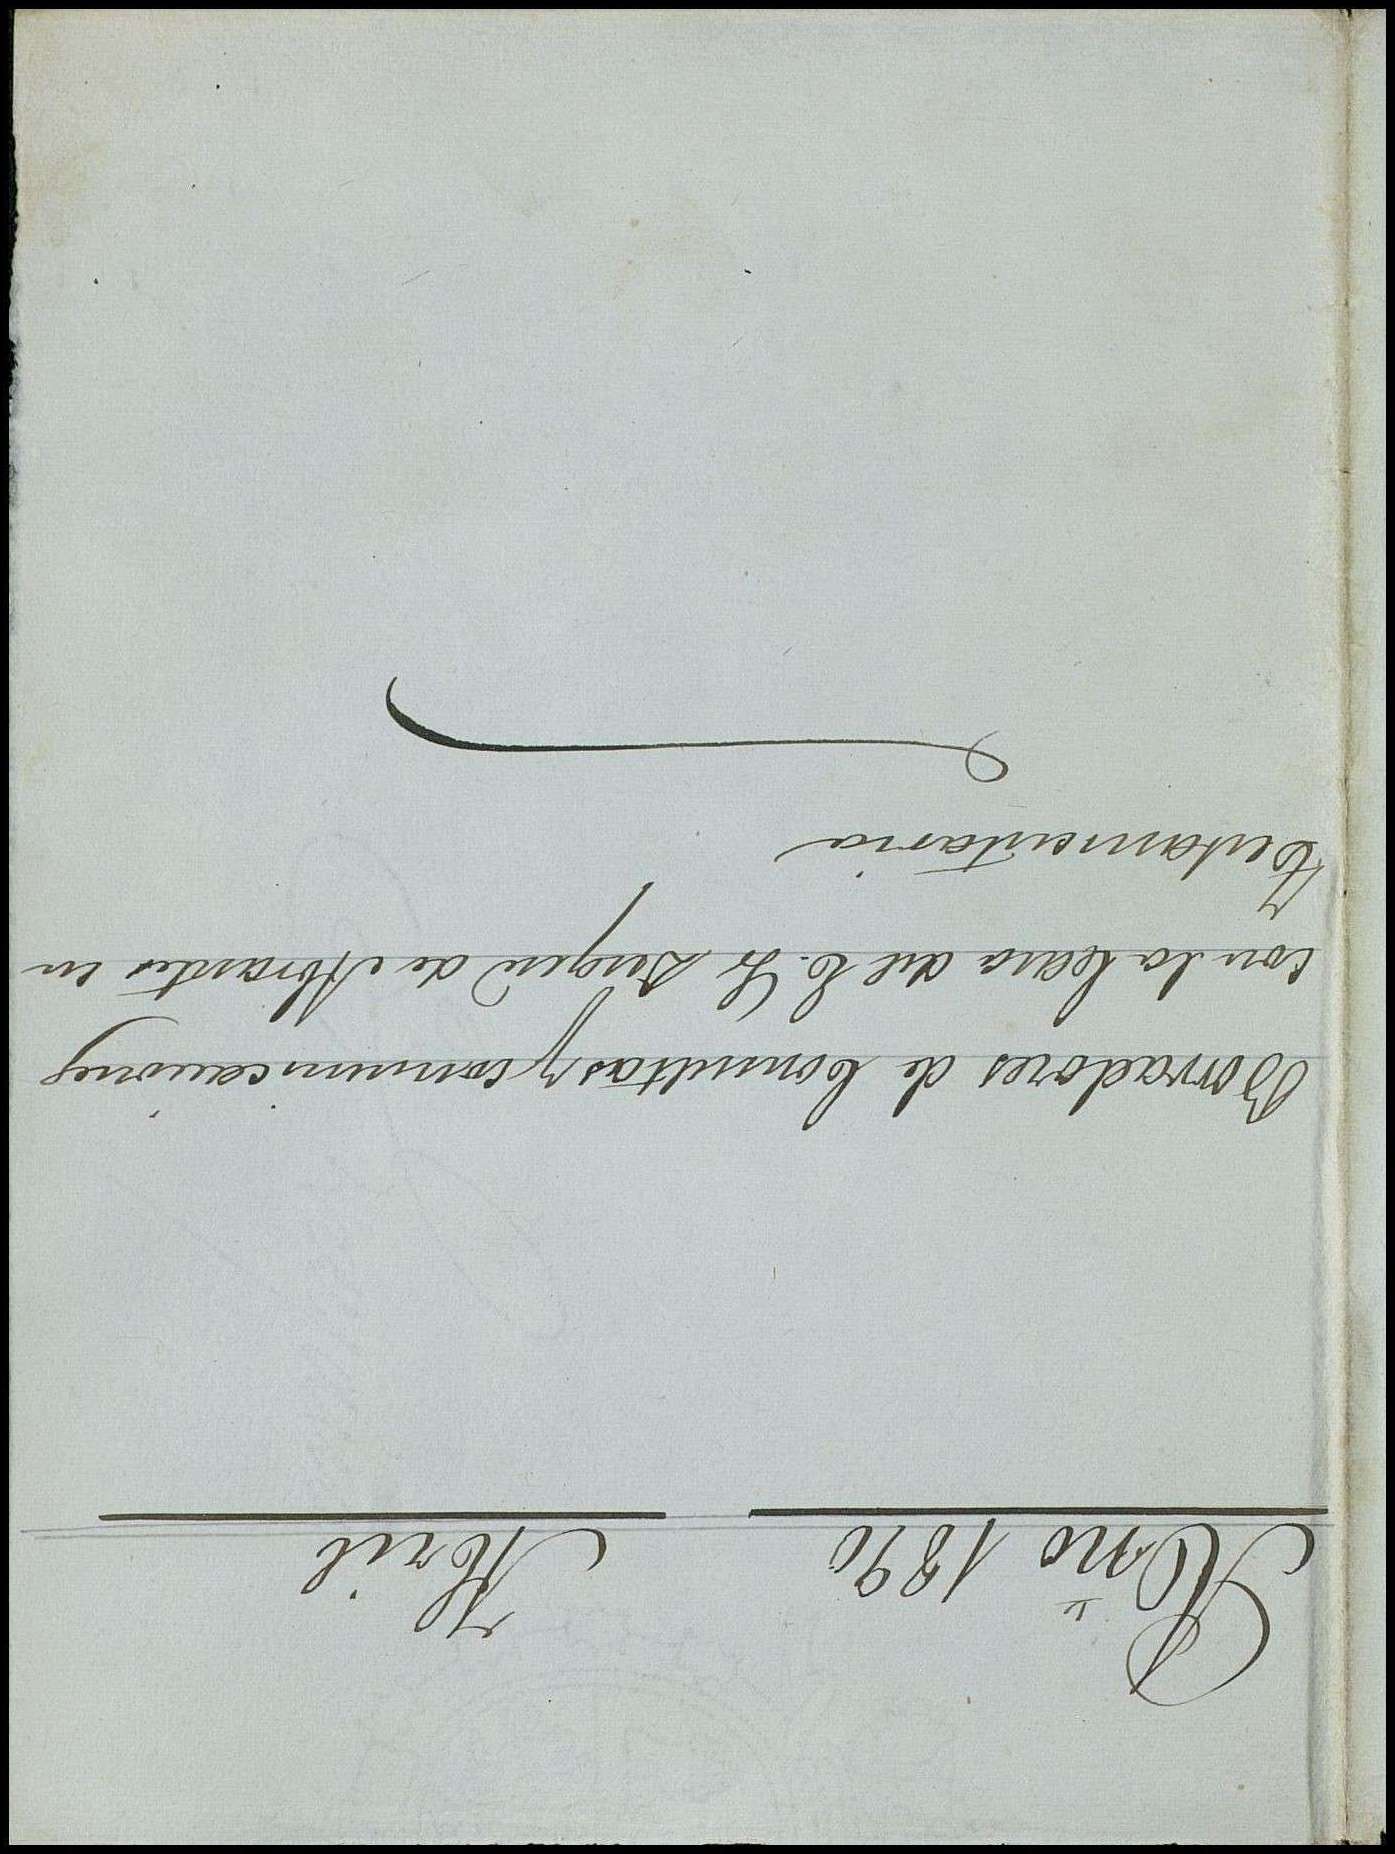 Año 1890 Abril
Borradores de Consultas y comunicaciones
con la Casa del E. Sr Duque de Abrantes en
Testamentaria